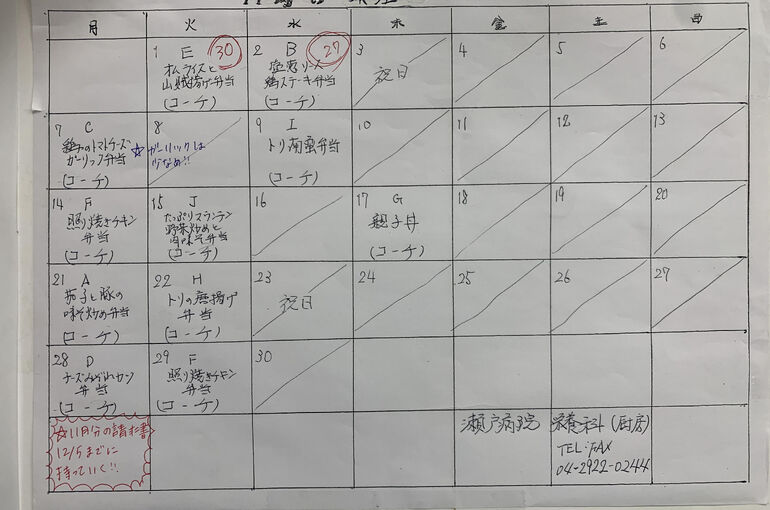 月 火 水 木 金 土 日
1 E 30
オムライスと
山賊揚げ弁当
(コーチ)
2 B 27
塩麹ソース
鶏ステーキ弁当
(コーチ)
3
祝日
4
5
6
7 C
鶏のトマトチーズ
ガーリック弁当
(コーチ)
8
☆ガーリックは
少なめ!!
9 I
トリ南蛮弁当
(コーチ)
10
11
12
13
14 F
照り焼きチキン
弁当
(コーチ)
15 J
たっぷりスタンラン
野菜炒めと
肉味そ弁当
(コーチ)
16
17 G
親子丼
(コーチ)
18
19
20
21 A
茄子と豚の
味そ炒め弁当
(コーチ)
22 H
トリの唐揚げ
弁当
(コーチ)
23
祝日
24
25
26
27
28 D
チーズみぞれカツ
弁当
(コーチ)
29 F
照り焼きチキン
弁当
(コーチ)
30
☆11月分の請求書
12/5までに
持っていく!!
瀬戸病院 栄養科(厨房)
TEL・FAX
04-2922-0244